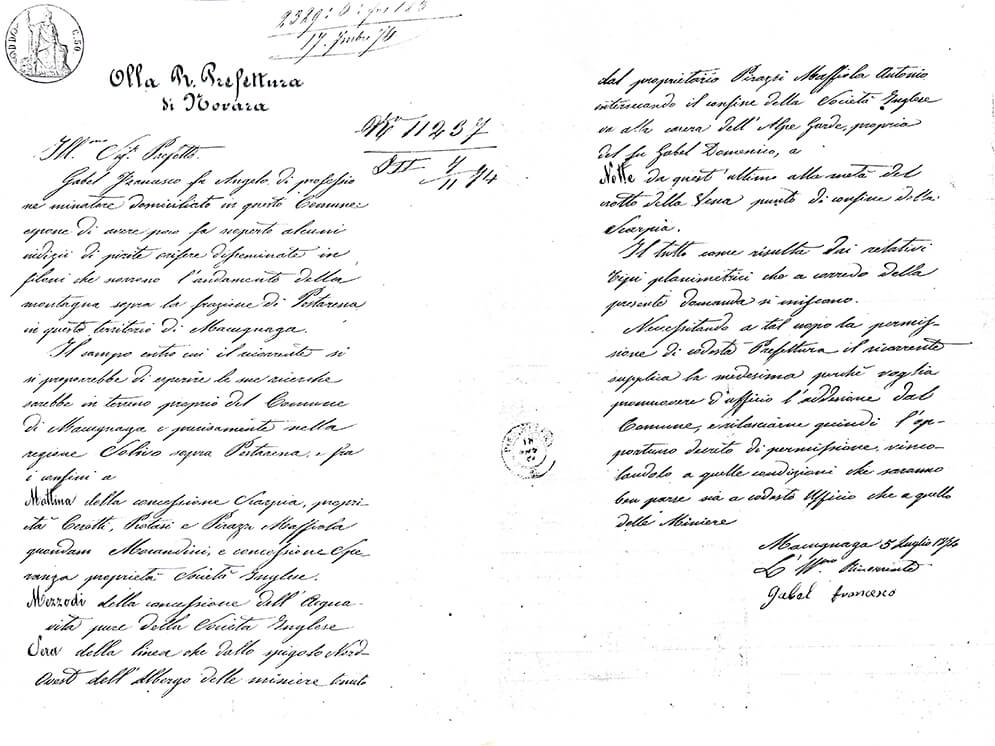 C. 50
17. 74
Alla R. Prefettura
di Novara
N.ro 11237
Ill.mo Sig.r Prefetto.
Gabel Francesco fu Angelo, di professio
ne minatore domiciliato in questo Comune
espone di avere poco fa scoperto alcuni
indizii di pirite orifere disseminate in
filoni che corrono l'andamento della
montagna sopra la frazione di Pestarena
in questo territorio di Macugnaga.
Il campo entro cui il ricorrente si
si proporrebbe di esperire le sue ricerche
sarebbe in terreno proprio del Comune
di Macugnaga e precisamente nella
regione sopra Pestarena, e fra
i confini a
Mattina della concessione Scarpia, propri
tà Cerotti, Protasi e Pirazzi Maffiola
quondam Morandini, e concessione Spe
ranza proprietà Società Inglese.
Mezzodì della concessione dell'Acqua
vita pure della Società Inglese
Sera della linea che dallo spigolo Nord-
Ovest dell'Albergo delle miniere tenuto
dal proprietario Pirazzi Maffiola Antonio
intersecando il confine della Società Inglese
va alla casera dell'Alpe Garde, propria
del fu Gabel Domenico, a
Notte da quest'ultimo alla metà del
crotto della Vena punto di confine della
Scarpia.
Il tutto come risulta dai relativi
tipi planimetrici che a corredo della
presente domanda si uniscono.
Necessitando a tal uopo la permis-
sione di codesta Prefettura il ricorrente
supplica la medesima perché voglia
promuovere d'ufficio l'addesione dal
Comune, e rilasciare quindi l'op-
portuno decreto di permissione, vinco-
landolo a quelle condizioni che saranno
ben parse sia a codesto Ufficio che a quello
delle Miniere
Macugnaga 5 Luglio 1874
L' Ricorrente
Gabel Francesco